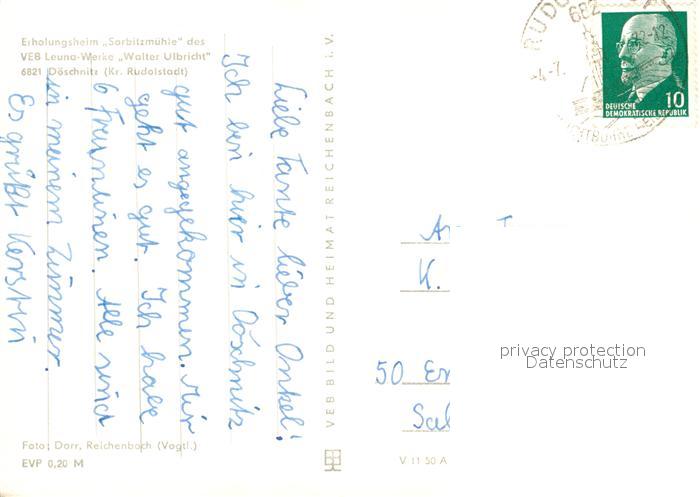 Erholungsheim „Sorbitzmühle" des
VEB Leuna-Werke „Walter Ulbricht"
6821 Döschnitz (Kr. Rudolstadt)
Liebe Tante lieber Onkel!
Ich bin hier in Döschnitz
gut angekommen. Mir
geht es gut. Ich habe
6 Freundinen. Alle sind
in meinem Zimmer.
Es grüßt Kerstin
Foto: Darr, Reichenbach (Vogtl.)
EVP 0,20 M
VEB BILD UND HEIMAT REICHENBACH i. V.
V 11 50 A
RUDO
682
10
DEUTSCHE
DEMOKRATISCHE REPUBLIK
K.
50 Er
Sal
privacy protection
Datenschutz